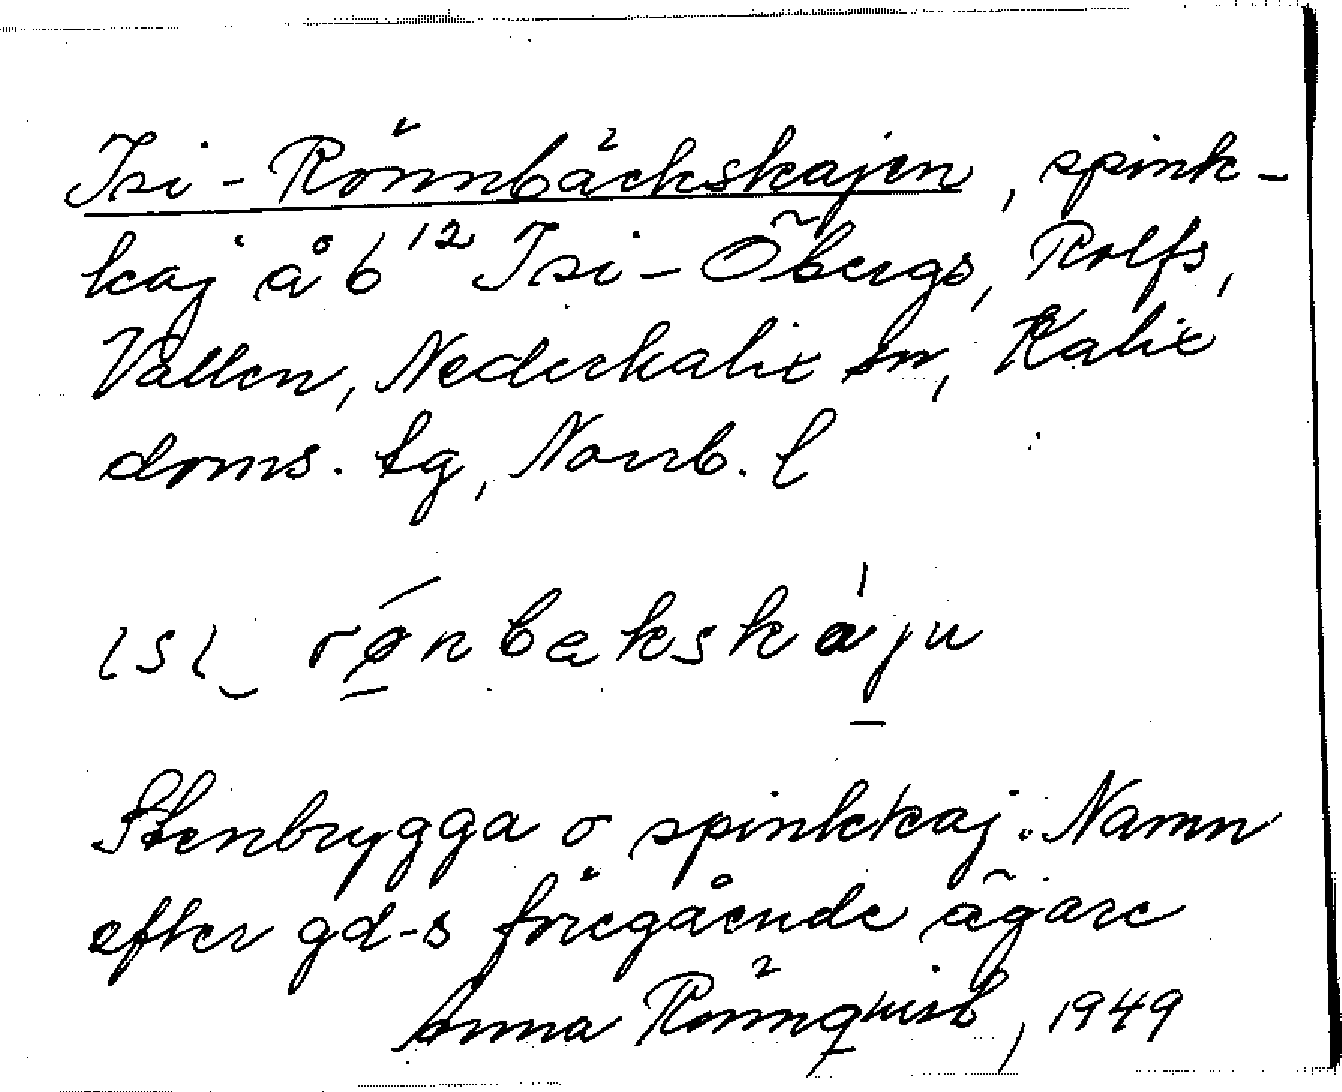 Isi-Rönnbäckskajen, spink-
kaj å b 12 Isi-Öbergs, Rolfs,
Vallen, Nederkalix sn, Kalix
doms. tg, Norrb. l
ɩsɩ‿ rǿ̱nbækskà̱ju
Stenbrygga o spinkkaj. Namn
efter gd-s föregående ägare
Anna Rönnquist, 1949